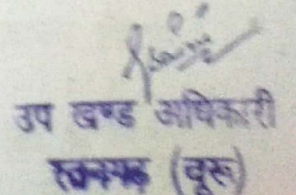 उप खण्ड अधिकारी
(चूरू)